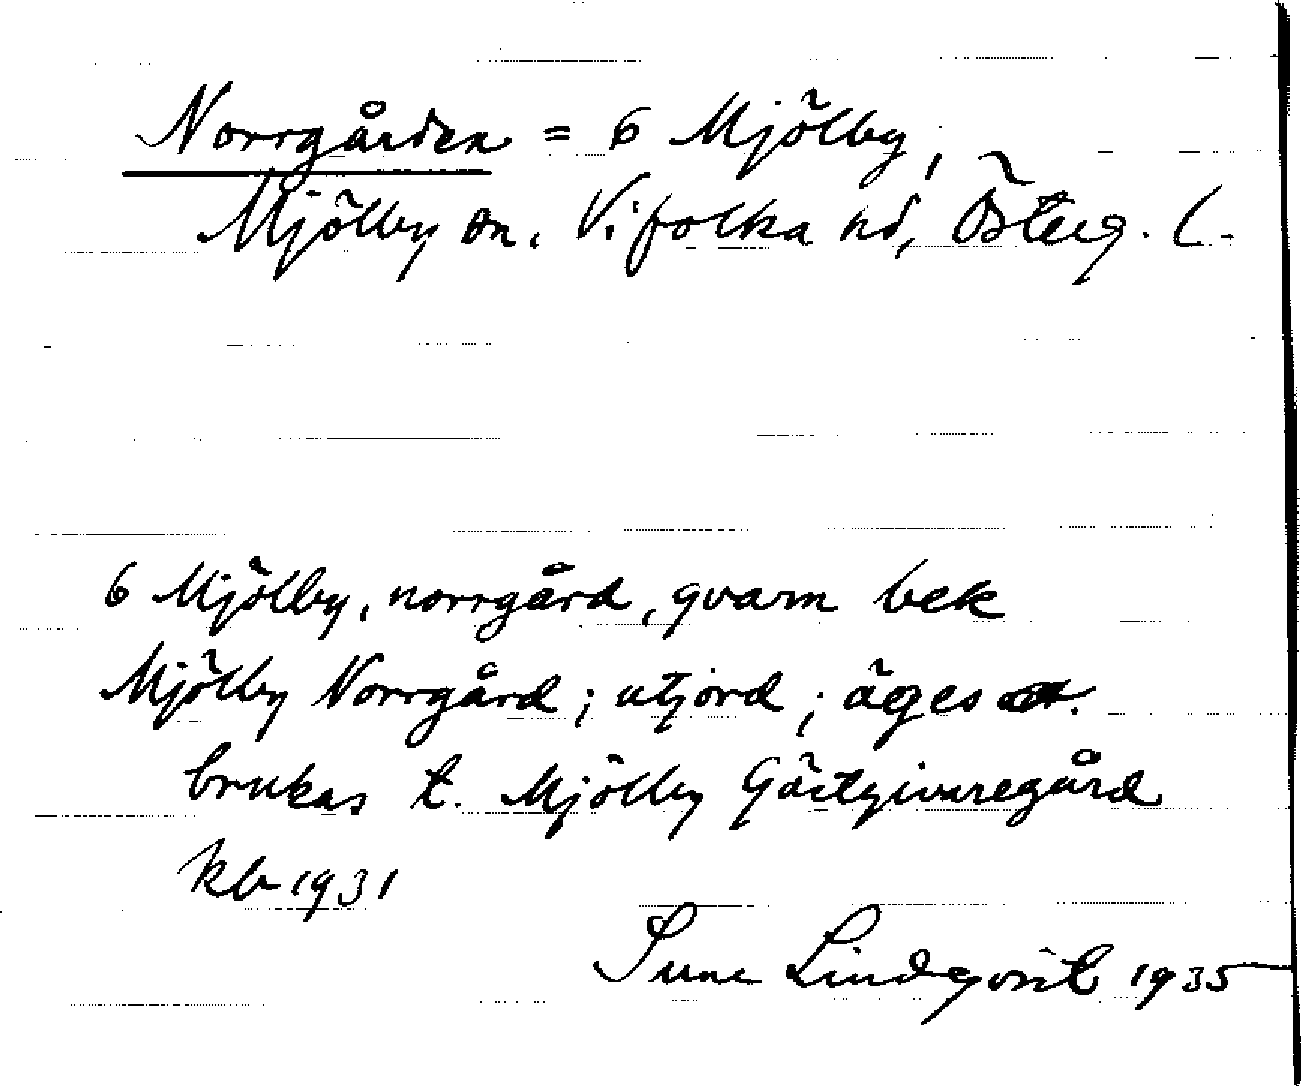 Norrgården = 6 Mjölby,
Mjölby sn. Vifolka hd, Österg. L.
6 Mjölby, norrgård, qvarn bek
Mjölby Norrgård; utjord; äges
brukas t. Mjölby Gästgivaregård
kb 1931
Sune Lindqvist 1935